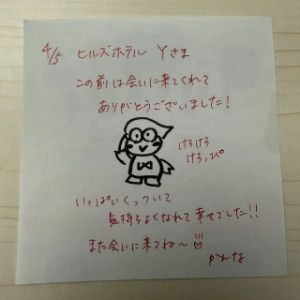 4/5 ヒルズホテル Yさま
この前は会いに来てくれて
ありがとうございました!
けろけろ
けろっぴ
いっぱいくっついて
気持ちよくなれて幸せでした!!
また会いに来てね〜